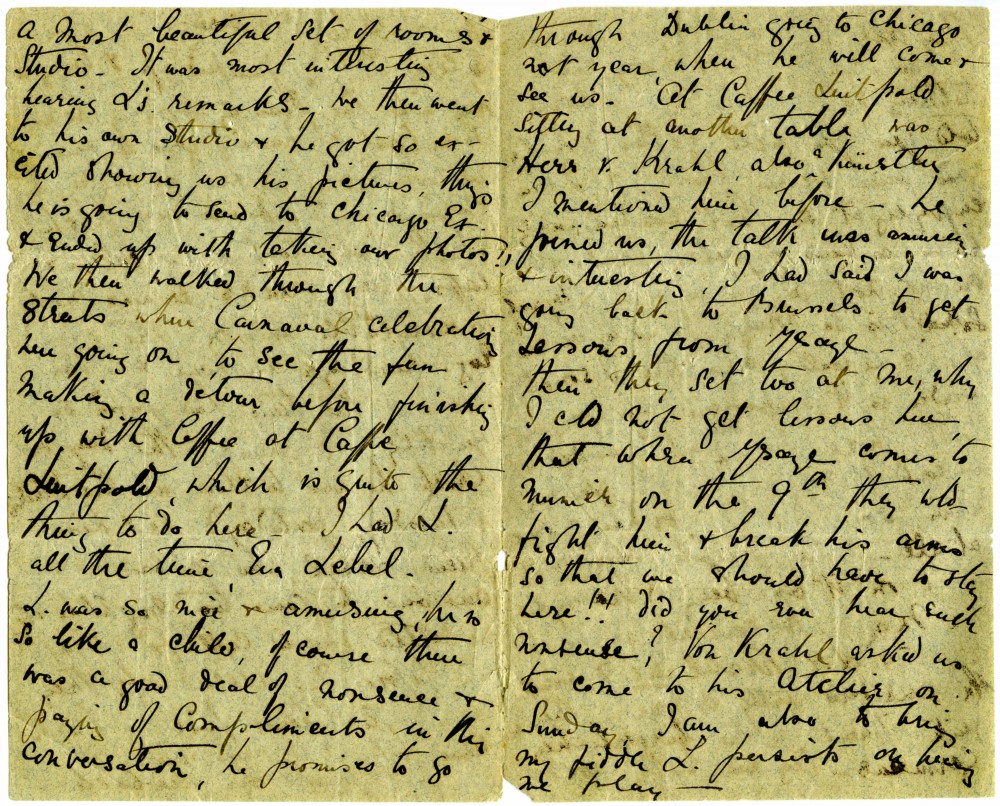 a most beautiful set of rooms &
Studio - It was most interesting
hearing L's. remarks - We then went
to his own Studio & he got so ex-
cited showing us his pictures, things
he is going to send to Chicago Ex.
& ended up with taking our photos!,
We then walked through the
Streets where Carnaval celebrations
were going on, to see the fun
making a detour before finishing
up with Coffee at Caffe
Luitpold, which is quite the
thing to do here - I had L.
all the time, Eva Lebel.
L. was so nice & amusing, he is
so like a child, of course there
was a good deal of nonsence &
paying of Compliments in his
conversation, he promises to go
through Dublin going to Chicago
next year, when he will come &
see us - At Caffee Luitpold
sitting at another table was
Herr v. Krahl, also a Künstler
I mentioned him before - he
joined us, the talk was amusing
& interesting, I had said I was
going back to Brussels to get
Lessons from Ysaye -
then they set too at me, why
I cld not get lessons here,
that when Ysaye comes to
Munich on the 9th they wld
fight him & break his arms
so that we should have to stay
here!! did you ever hear such
nonsense? Von Krahl asked us
to come to his Atelier on
Sunday, I am also to bring
my fiddle L. persists on hearing
me play -